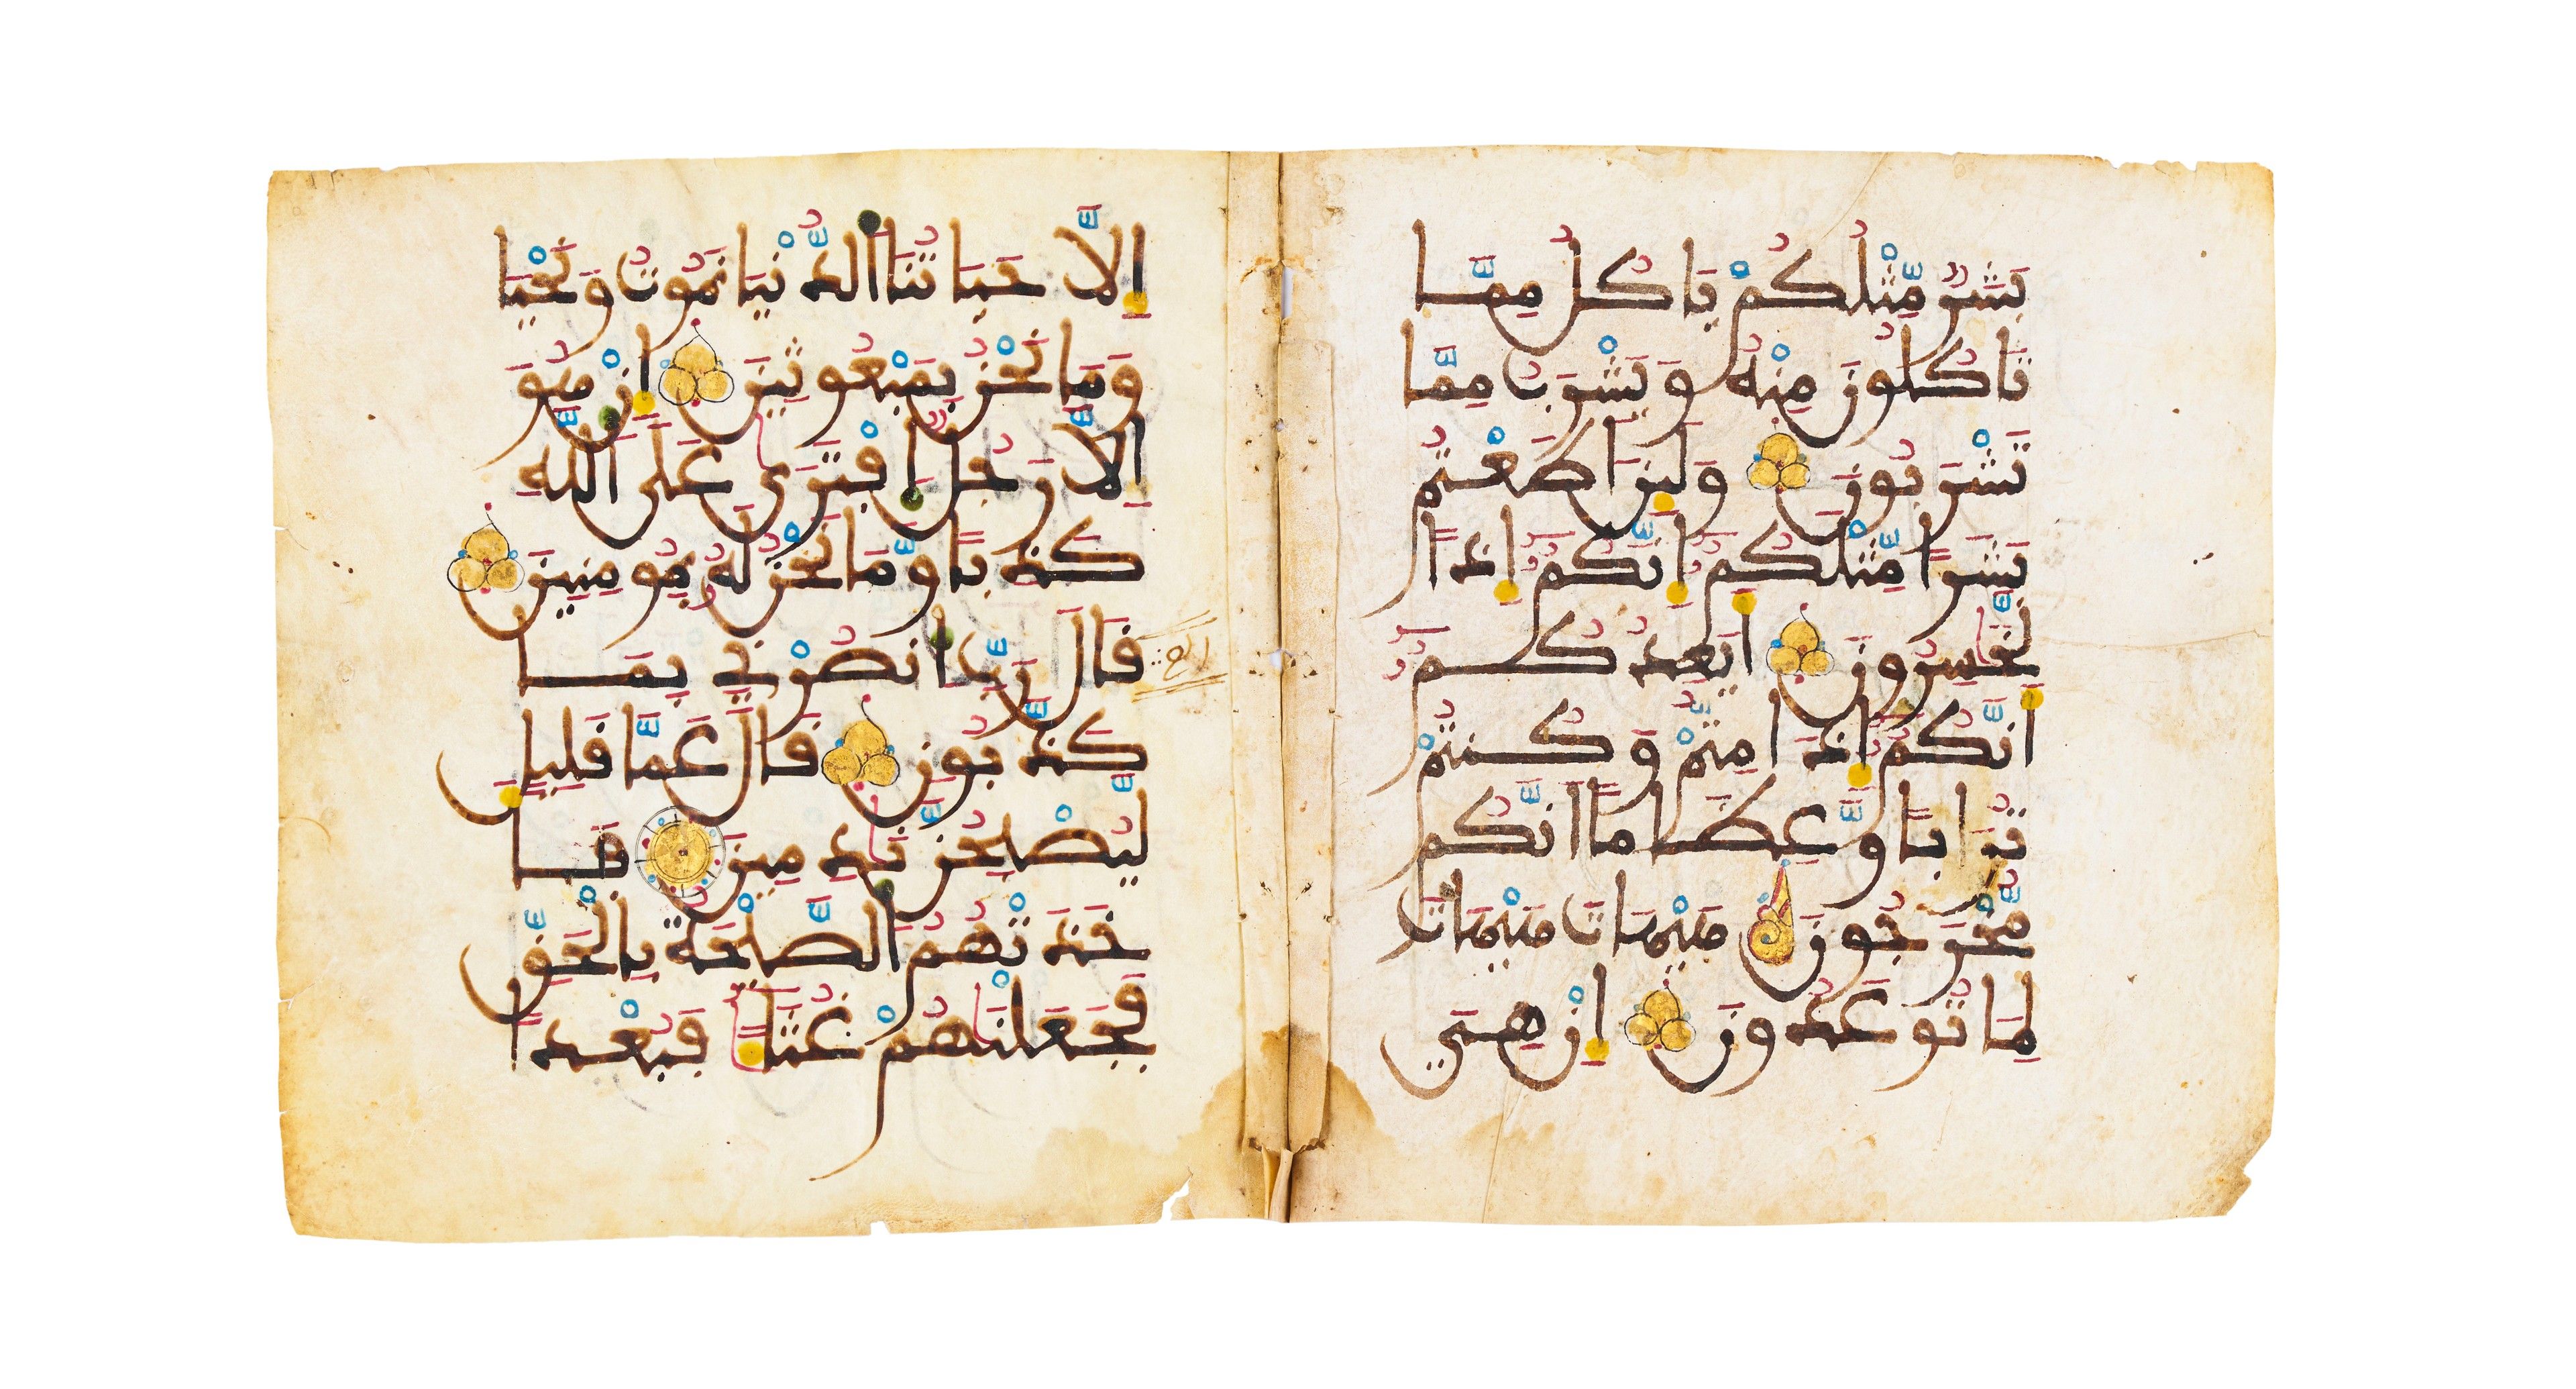 بَشَرٌ مِّثْلُكُمْ يَاكُلُ مِمَّا
تَاكُلُونَ مِنْهُ وَيَشْرَبُ مِمَّا
تَشْرَبُونَ وَلَئِنَ اَطَعْتُم
بَشَرًا مِّثْلَكُمُ إِنَّكُمُ إِذًا
لَّخَٰسِرُونَ أَيَعِدُكُمُ
أَنَّكُمُ إِذَا مِتُّمْ وَكُنتُمْ
تُرَابًا وَّعِظَامًا اَنَّكُم
مُّخْرَجُونَ هَيْهَاتَ هَيْهَاتَ
لِمَا تُوعَدُونَ إِنْ هِيَ
إِلَّا حَيَاتُنَا الدُّنْيَا نَمُوتُ وَنَحْيَا
وَمَا نَحْنُ بِمَبْعُوثِينَ إِنْ هُوَ
إِلَّا رَجُلٌ اِفْتَرَىٰ عَلَى اَللَّهِ
كَذِبًا وَّمَا نَحْنُ لَهُ بِمُومِنِينَ
قَالَ رَبِّ اِنصُرْنِي بِمَا
كَذَّبُونِ قَالَ عَمَّا قَلِيلٍ
لَّيُصْبِحُنَّ نَٰدِمِينَ فَا
خَذَتْهُمُ الصَّيْحَةُ بِالْحَقِّ
فَجَعَلْنَٰهُمْ غُثَآءً فَبُعْدًا